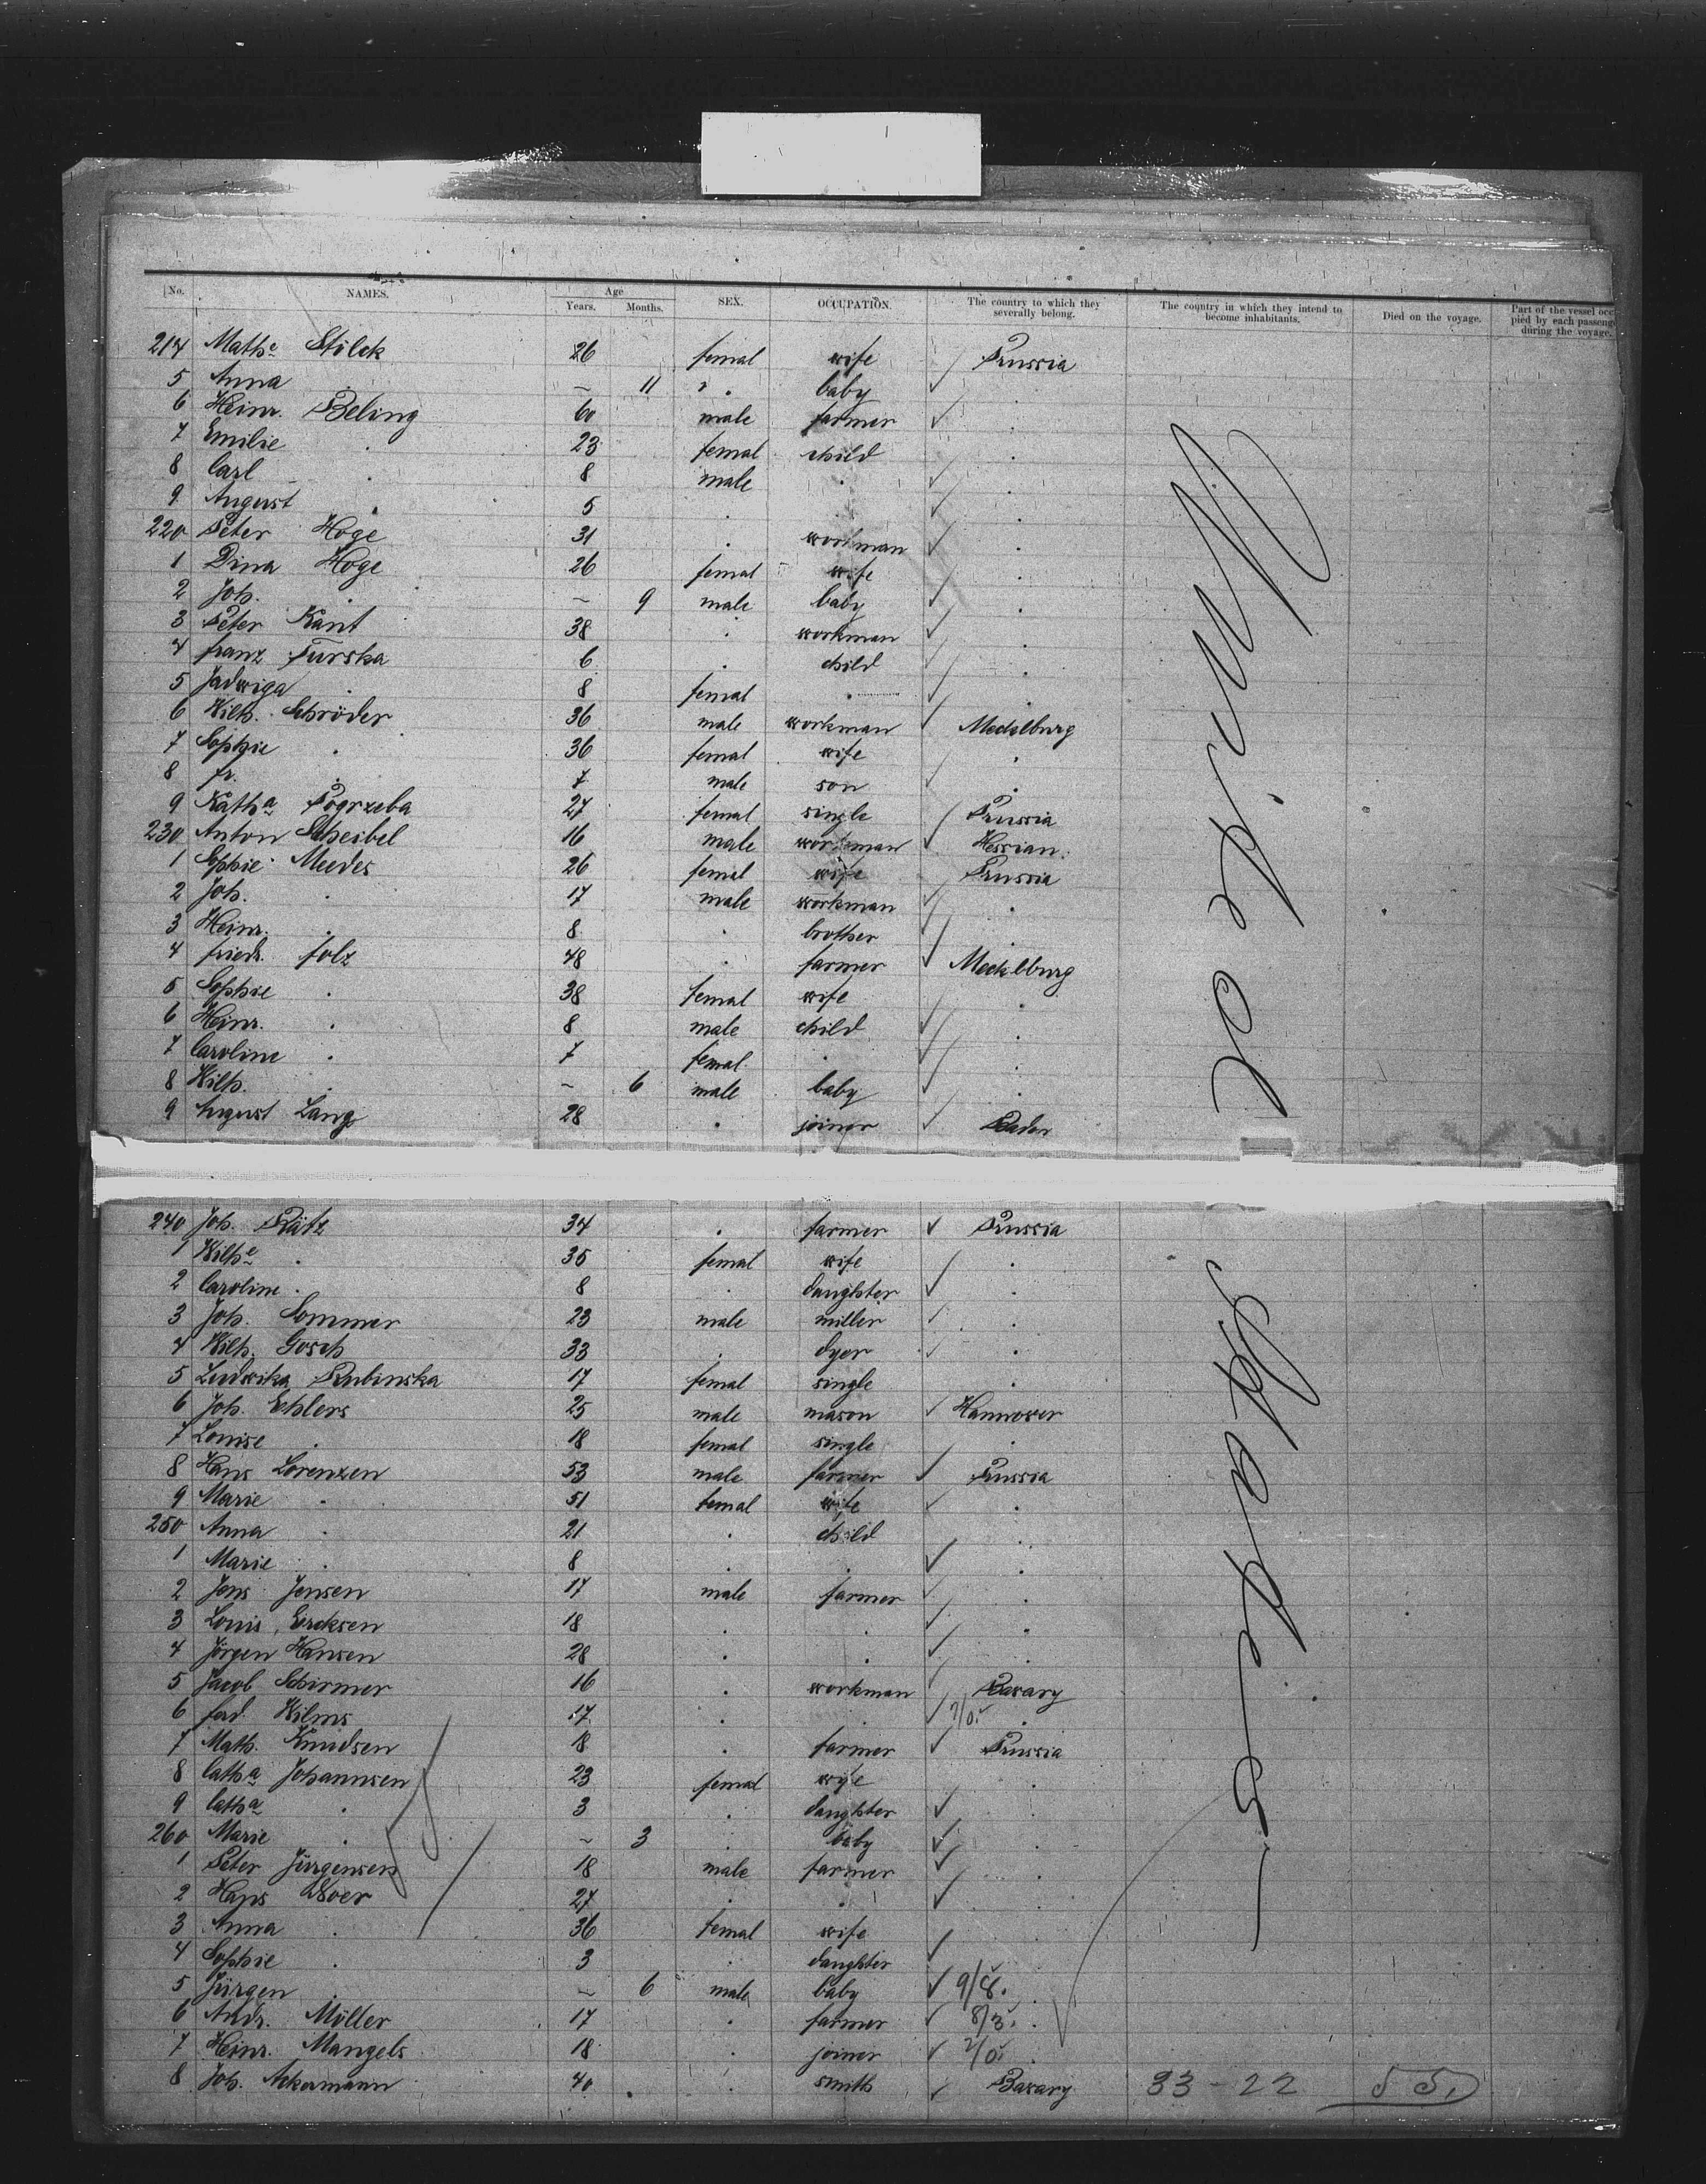 No. NAMES. Age Years. Months. SEX. OCCUPATION. The country to which they severally belong. The country in which they intend to become inhabitants. Died on the voyage. Part of the vessel occ pied by each passeng during the voyage.
214 Mathe Stölck 26 femal wife ✓ Prussia
5 Anna . – 11 " . baby ✓ .
6 Heinr. Beling 60 male farmer ✓ .
7 Emilie . 23 femal child .
8 Carl . 8 male . ✓ .
9 August . 5 . . ✓ .
220 Peter Hoge 31 . workman ✓ .
1 Dina Hoge 26 femal wife ✓ .
2 Joh. . – 9 male baby ✓ .
3 Peter Kant 38 . workman ✓ .
4 Franz Turska 6 . child ✓ .
5 Jadwiga . 8 femal . ✓ .
6 Wilh. Schröder 36 male workman ✓ Mecklburg
7 Sophie . 36 femal wife .
8 Fr. . 7 male son ✓ .
9 Katha Pogrzeba 27 femal single ✓ Prussia
230 Anton Scheibel 16 male workman ✓ Hessian.
1 Sophie Meedes 26 femal wife Prussia
2 Joh. . 17 male workman ✓ .
3 Heinr. . 8 . brother ✓ .
4 Friedr. Folz 48 . farmer ✓ Mecklburg
5 Sophie . 38 femal wife .
6 Heinr. . 8 male child ✓ .
7 Caroline . 7 femal . ✓ .
8 Wilh. . – 6 male baby ✓ .
9 August Lang 28 . joiner ✓ Baden
240 Joh. Rätz 34 . farmer ✓ Prussia
1 Wilhe . 35 femal wife .
2 Caroline . 8 . daughter ✓ .
3 Joh. Sommer 23 male miller ✓ .
4 Wilh. Gosch 33 . dyer ✓ .
5 Ludwika Rubinska 17 femal single .
6 Joh. Ehlers 25 male mason ✓ Hannover
7 Louise . 18 femal single .
8 Hans Lorenzen 53 male farmer ✓ Prussia
9 Marie . 51 femal wife ✓ .
250 Anna . 21 . child .
1 Marie . 8 . . ✓ .
2 Jens Jensen 17 male farmer ✓ .
3 Louis Ercksen 18 . . ✓ .
4 Jörgen Hansen 28 . . ✓ .
5 Jacob Schirmer 16 . workman ✓ Bavary
6 Ferd. Wilms 17 . . ✓ .
7 Math. Knudsen 18 . farmer ✓ Prussia
8 Catha Johannsen 23 femal wife .
9 Catha . 3 . daughter ✓ .
260 Marie . – 3 . baby ✓ .
1 Peter Jürgensen 18 male farmer ✓ .
2 Hans 27 . . ✓ .
3 Anna . 36 femal wife .
4 Sophie . 3 . daughter ✓
5 Jürgen . – 6 male baby ✓ 9/8.
6 Andr. Möller 17 . farmer ✓ 8/3. .
7 Heinr. Mangels 18 . joiner ✓ .
8 Joh. Ackermann 40 . smith ✓ Bavary 33 - 22 55.